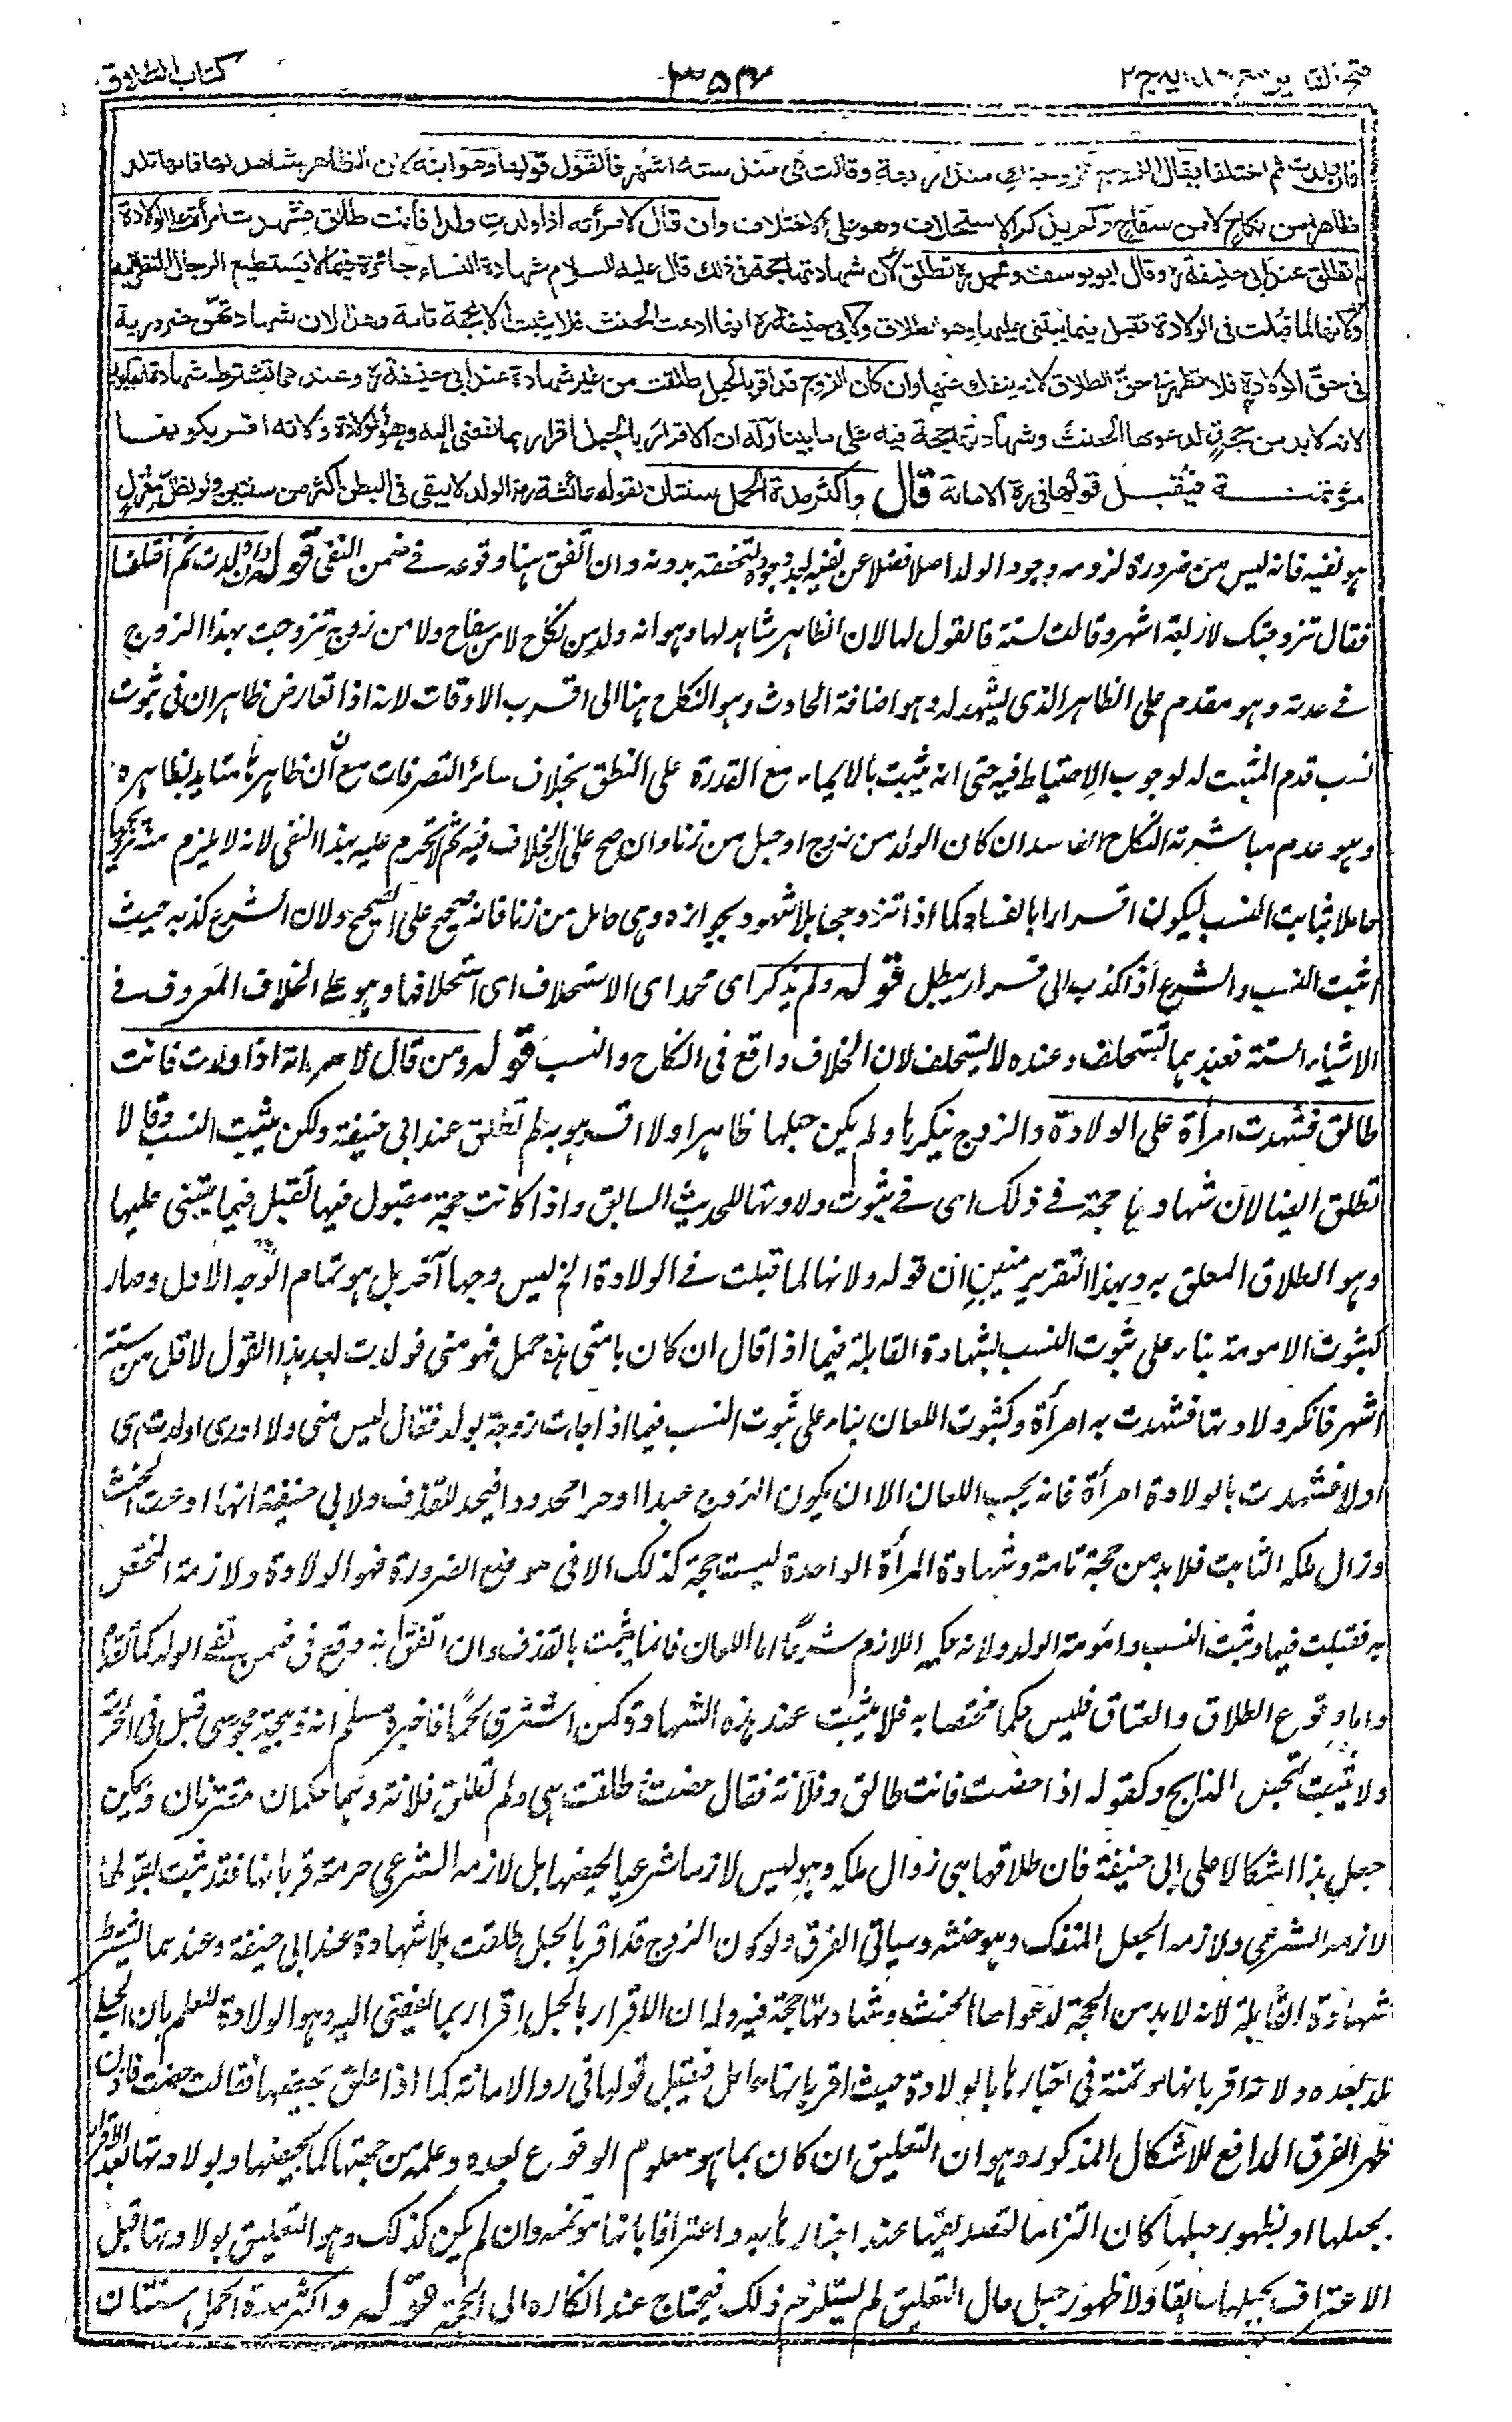 كتاب الطلاق
٣٥٤
فان ولدت ثم اختلفا فقال الزوج تزوجتك منذ اربعة وقالت هي منذ ستة اشهر فالقول قولها وهو ابنه لان الظاهر شاهد لها فانها تلد
ظاهرا من نكاح لا من سفاح ولم يذكر الاستحلاف وهو على الاختلاف وان قال لامرأته اذا ولدت ولدا فأنت طالق فشهدت امرأة على الولادة
لم تطلق عند ابى حنيفة رح وقال ابو يوسف ومحمد رح تطلق لان شهادتها حجة فى ذلك قال عليه السلام شهادة النساء جائزة فيما لا يستطيع الرجال النظر اليه
ولانها لما قبلت فى الولادة تقبل فيما يبتنى عليها وهو الطلاق ولابى حنيفة رح انها ادعت الحنث فلا يثبت الا بحجة تامة وهذا لان شهادتهن ضرورية
فى حق الولادة فلا تظهر فى حق الطلاق لانه ينفك عنها وان كان الزوج قد اقر بالحبل طلقت من غير شهادة عند ابى حنيفة رح وعندهما تشترط شهادة القابلة
لانه لا بد من حجة لدعوىها الحنث وشهادتها حجة فيه على ما بينا وله ان الاقرار بالحبل اقرار بما يفضى اليه وهو الولادة ولانه اقر بكونها
مؤتمنة فيقبل قولها فى رد الامانة قال واكثر مدة الحمل سنتان لقوله عائشة رض الولد لا يبقى فى البطن اكثر من سنتين ولو بظل مغزل
هو نفيه فانه ليس من ضرورة لزومه وجود الولد اصلا فضلا عن نفيه بعد وجوده لتحققه بدونه وان اتفق هنا وقوعه فى ضمن النفى قوله وان ولدت ثم اختلفا
فقال تزوجتك لاربعة اشهر وقالت لستة فالقول لها لان الظاهر شاهد لها وهو انه ولد من نكاح لا من سفاح ولا من زوج تزوجت بهذا الزوج
فى عدته وهو مقدم على الظاهر الذى يشهد له وهو اضافة الحادث وهو النكاح هنا الى اقرب الاوقات لانه اذا تعارض ظاهران فى ثبوت
نسب قدم المثبت له لوجوب الاحتياط فيه حتى انه يثبت بالايماء مع القدرة على النطق بخلاف سائر التصرفات مع ان ظاهرها متايد بظاهره
وهو عدم مباشرة النكاح الفاسد ان كان الولد من زوج او حبل من زنا وان صح على الخلاف فيه ثم لا تحرم عليه بهذا النفى لانه لا يلزم منه تزوجها
حاملا ثابت النسب ليكون اقرارا بالفساد كما اذا تزوجها بلا شهود بجوازه وهى حامل من زنا فانه صحيح على الصحيح ولان الشرع كذبه حيث
اثبت النسب والشرع اذا كذب الاقرار يبطل قوله ولم يذكر اى محمد اى الاستحلاف اى استحلافها وهو على الخلاف المعروف فى
الاشياء الستة فعندهما تستحلف وعنده لا يستحلف لان الخلاف واقع فى النكاح والنسب قوله ومن قال لامرأته اذا ولدت فانت
طالق فشهدت امرأة على الولادة والزوج ينكرها ولم يكن حبلها ظاهرا ولا اقر هو به لم تطلق عند ابى حنيفة ولكن يثبت النسب وقالا
تطلق ايضا لان شهادتها حجة فى ذلك اى فى ثبوت ولادتها للحديث السابق واذا كانت حجة مقبول فيها تقبل فيما يبتنى عليها
وهو الطلاق المعلق به وبهذا التقرير تبين ان قوله ولانها لما قبلت فى الولادة الخ ليس وجها آخر بل هو تمام الوجه الاول وصار
كثبوت الامومة بناء على ثبوت النسب بشهادة القابلة فيما اذا قال ان كان بامتى هذه حمل فهو منى فولدت بعد هذا القول لاقل من ستة
اشهر فانكر ولادتها فشهدت به امرأة وكثبوت اللعان بناء على ثبوت النسب فيما اذا جاءت زوجة بولد فقال ليس منى ولا ادرى اولدت هى
اولا فشهدت بالولادة امرأة فانه يجب اللعان الا ان يكون الزوج عبدا او حرا محدودا فيحد للقذف ولابى حنيفة انها ادعت الحنث
وزال ملكه الثابت فلا بد من حجة تامة وشهادة المرأة الواحدة ليست حجة كذلك الا فى موضع الضرورة فهو الولادة ولازمه المختص
به فقبلت فيها وثبت النسب وامومة الولد ولانه حكمه اللازم شرعا اما اللعان فانما يثبت بالقذف وان اتفق انه وقع فى ضمن نفى الولد كما تقدم
واما وقوع الطلاق والعتاق فليس حكما مختصا به فلا يثبت عند هذه الشهادة كمن اشترى لحما فاخبره مسلم انه ذبيحة مجوسى قبل فى الحرمة
ولا يثبت تمجس الذابح وكقوله اذا حضت فانت طالق وفلانة فقال حضت طلقت هى ولم تطلق فلانة وهما حكمان مقترنان ويمكن
جعل هذا اشكالا على ابى حنيفة فان طلاقها هى زوال ملكه وهو ليس لازما شرعيا لحيضها بل لازمه الشرعى حرمة قربانها فقد ثبت بقولها
لازمه الشرعى ولازمه الجعل المنفك وهو حنثه وسياتى الفرق ولو كان الزوج قد اقر بالحبل طلقت بلا شهادة عند ابى حنيفة وعندهما تشترط
شهادة القابلة لانه لا بد من الحجة لدعواها الحنث وشهادتها حجة فيه وله ان الاقرار بالحبل اقرار بما يفضى اليه وهو الولادة للعلم بان الحبل
تلد بعده ولانه اقر بانها مؤتمنة فى اخبارها بالولادة حيث اقر بانها حامل فيقبل قولها فى رد الامانة كما اذا علق بحيضها فقالت حضت فاذن
ظهر الفرق الدافع للاشكال المذكور وهو ان التعليق ان كان بما هو معلوم الوقوع بعده وعلمه من جهتها كما بحيضها وبولادتها بعد الاقرار
بحبلها او بظهور حبلها كان التزاما لتصديقها عند اخبارها به واعترافا بانها مؤتمنه وان لم يكن كذلك وهو التعليق بولادتها قبل
الاعتراف بحبلها سابقا ولا ظهور حبل حال التعليق لم يستلزم ذلك فيحتاج عند انكاره الى الحجة قوله واكثر مدة الحمل سنتان